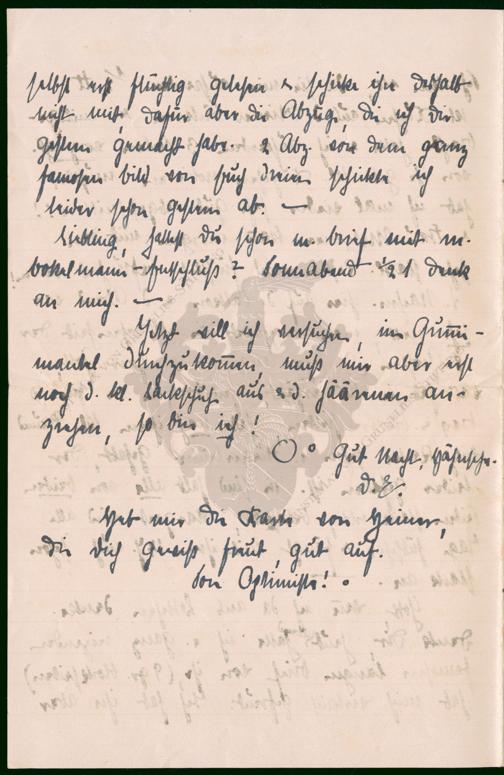 selbst erst flüchtig gelesen u. schicke ihn deshalb
nicht mit, dafür aber die Abzüge, die ich dir
gestern gemacht habe. 2 Abz. von dem ganz
famosen Bild von Euch dreien schickte ich
leider schon gestern ab. —
Liebling, hattest Du schon m. Brief mit m.
Bokelmann-Entschluß? Sonnabend ½ 1 denk
an mich. —
Jetzt will ich versuchen, im Gum̅i-
mantel durchzukom̅en, muß mir aber erst
noch d. kl. Lackschuh aus u. d. an-
ziehen, so bin ich!
Gut Nacht,
D. E.
Heb mir die Karte von Heiner,
die Dich gewiß freut, gut auf.
Son Optimist!